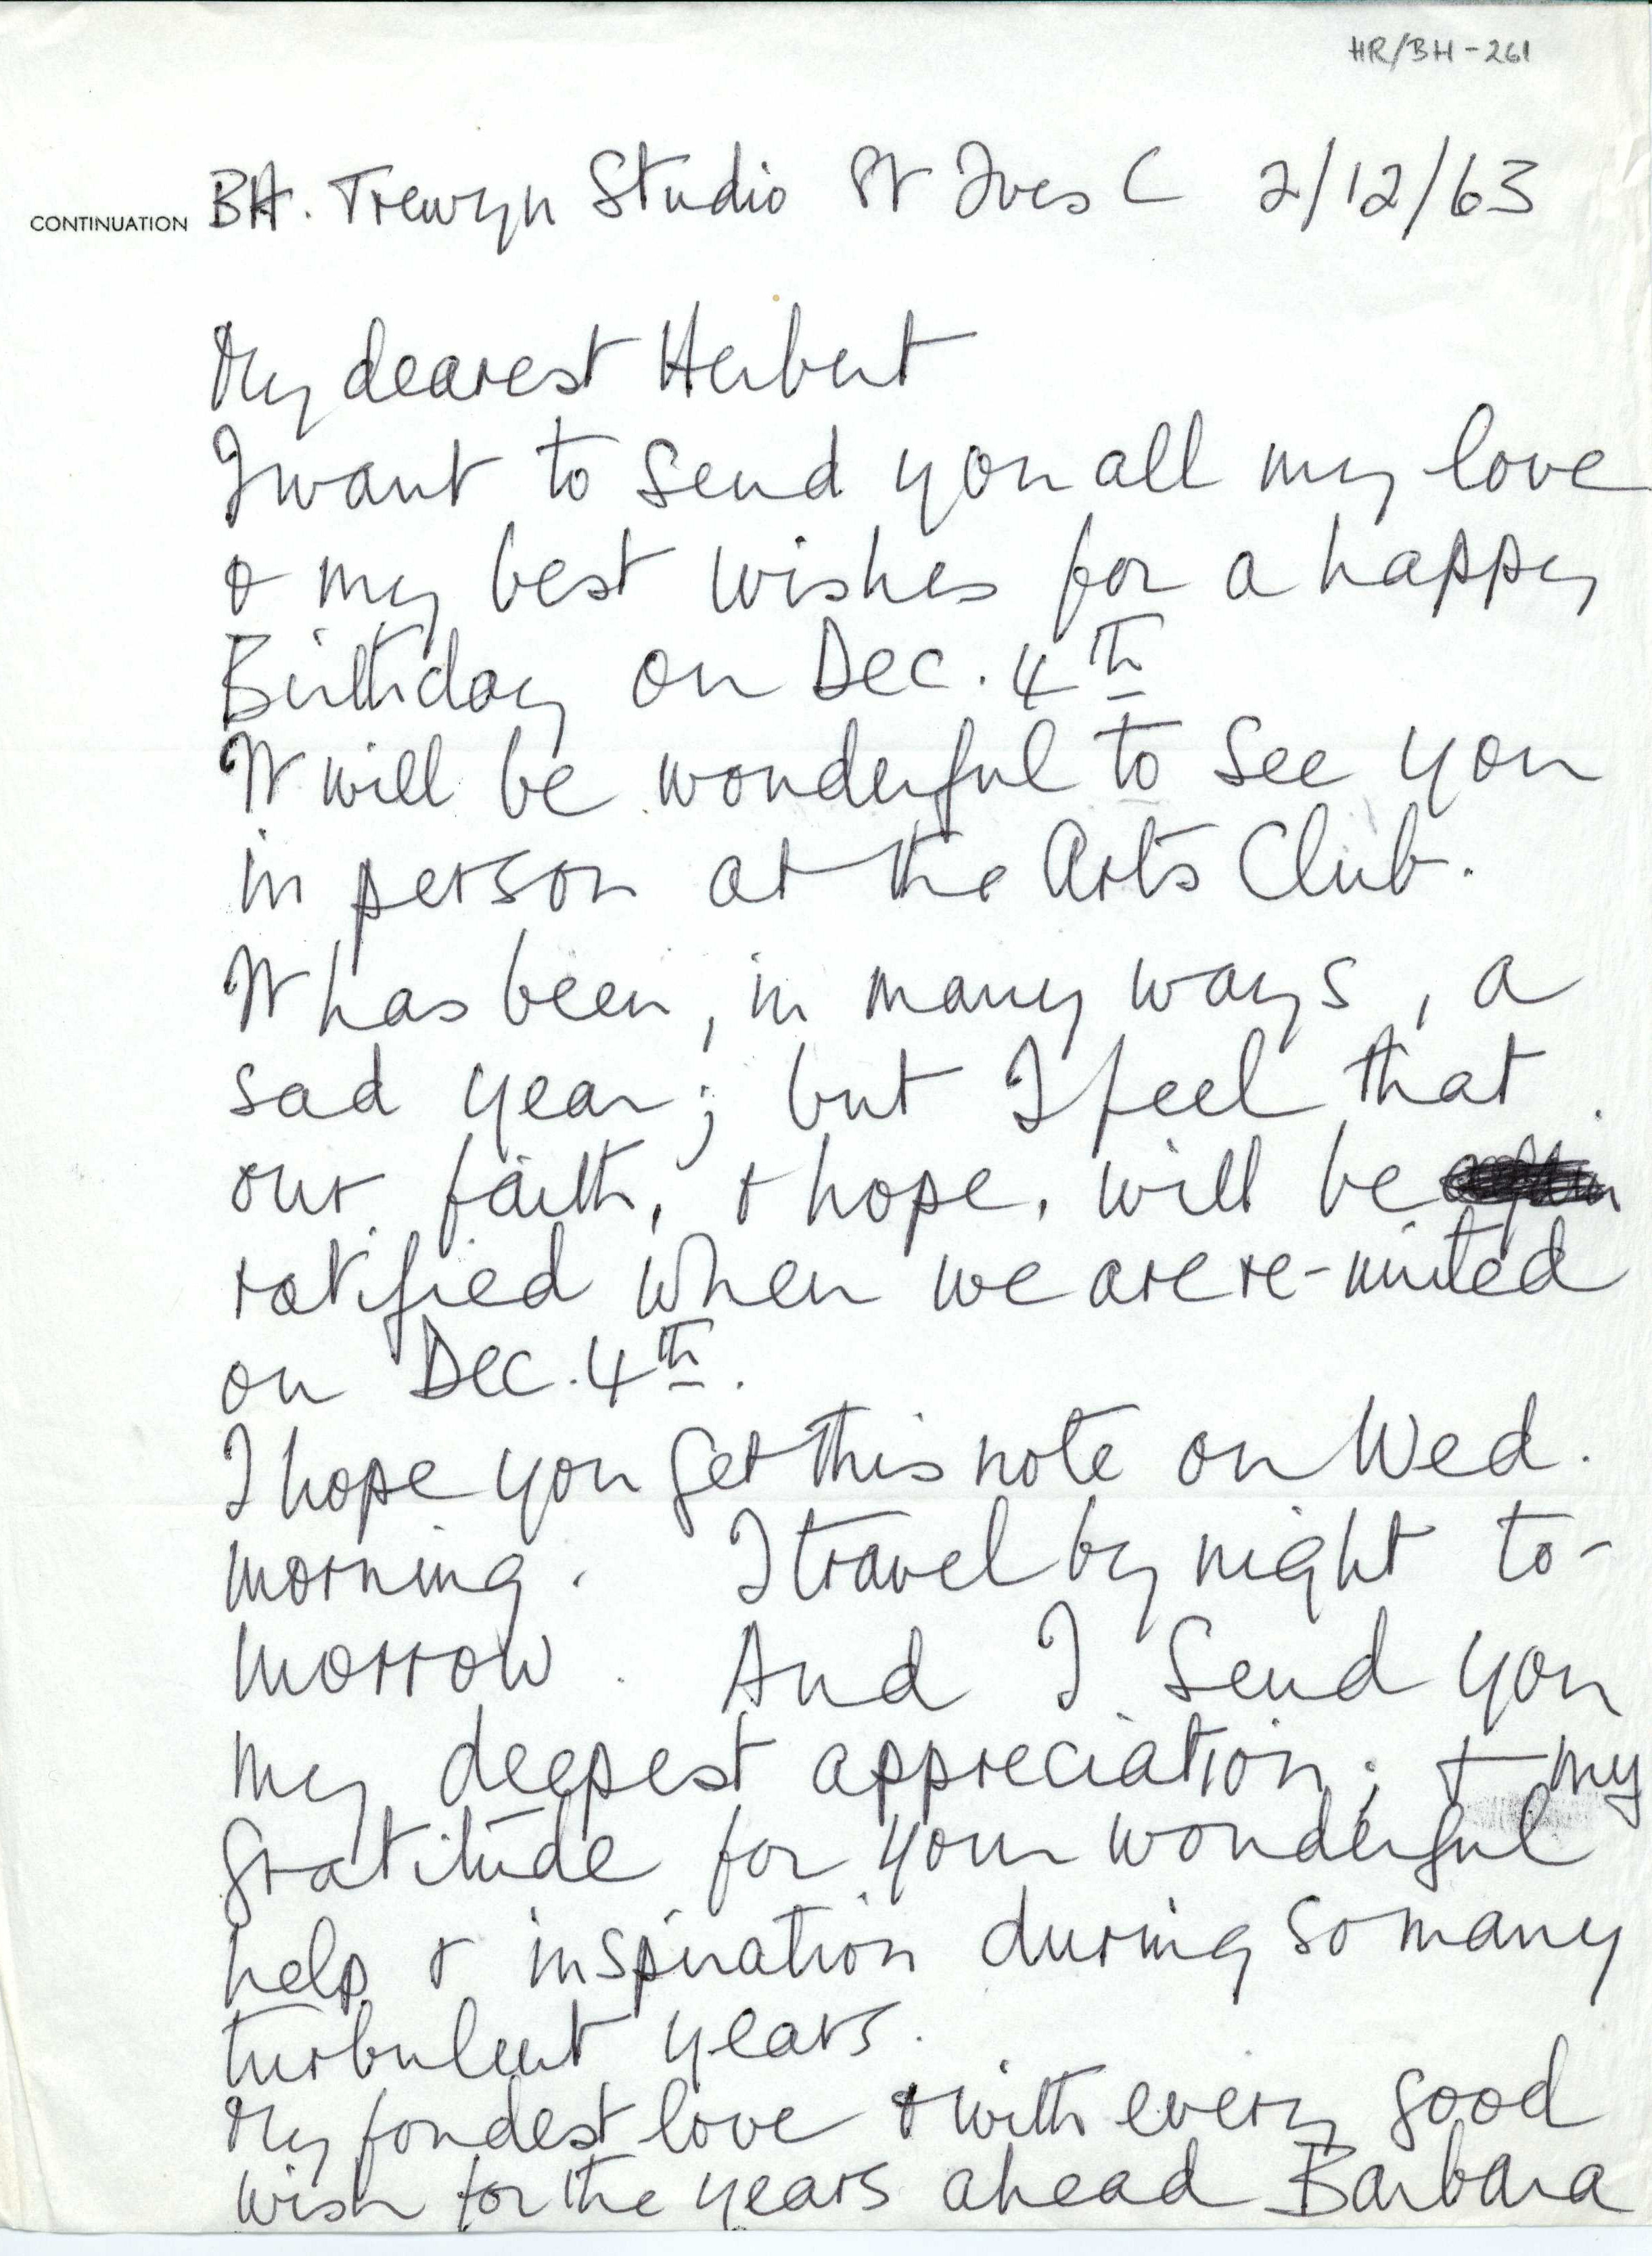 HR/BH-261
CONTINUATION BH. Trewyn Studio St Ives C 2/12/63
My dearest Herbert
I want to send you all my love
& my best wishes for a happy
Birthday on Dec. 4th
It will be wonderful to see you
in person at the Arts Club.
It has been, in many ways, a
sad year; but I feel that
our faith, & hope, will be
ratified when we are re-united
on Dec. 4th.
I hope you get this note on Wed.
morning. I travel by night to-
morrow. And I send you
my deepest appreciation; & my
gratitude for your wonderful
help & inspiration during so many
turbulent years.
My fondest love & with every good
wish for the years ahead Barbara